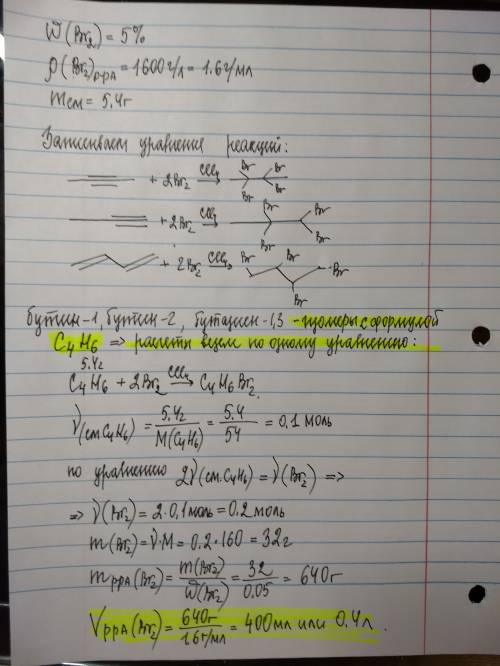 W(Br₂) = 5%
ρ(Br₂)р-ра = 1600 г/л = 1.6 г/мл
mсм = 5.4г
Записываем уравнения реакций:
+ 2Br₂ CCl₄ → Br Br Br Br
+ 2Br₂ CCl₄ → Br Br Br Br
+ 2Br₂ CCl₄ → Br Br Br Br
бутин-1, бутин-2, бутадиен-1,3 - изомеры с формулой
C₄H₆ => расчеты ведем по одному уравнению:
5.4г
C₄H₆ + 2Br₂ CCl₄ → C₄H₆Br₂.
ν(см.C₄H₆) = 5.4г / M(C₄H₆) = 5.4 / 54 = 0.1 моль
по уравнению 2ν(см.C₄H₆) = ν(Br₂) =>
=> ν(Br₂) = 2·0,1моль = 0.2 моль
m(Br₂) = ν·M = 0.2·160 = 32г
mр-ра(Br₂) = m(Br₂) / W(Br₂) = 32 / 0.05 = 640г
Vр-ра(Br₂) = 640г / 1.6г/мл = 400мл или 0.4л.